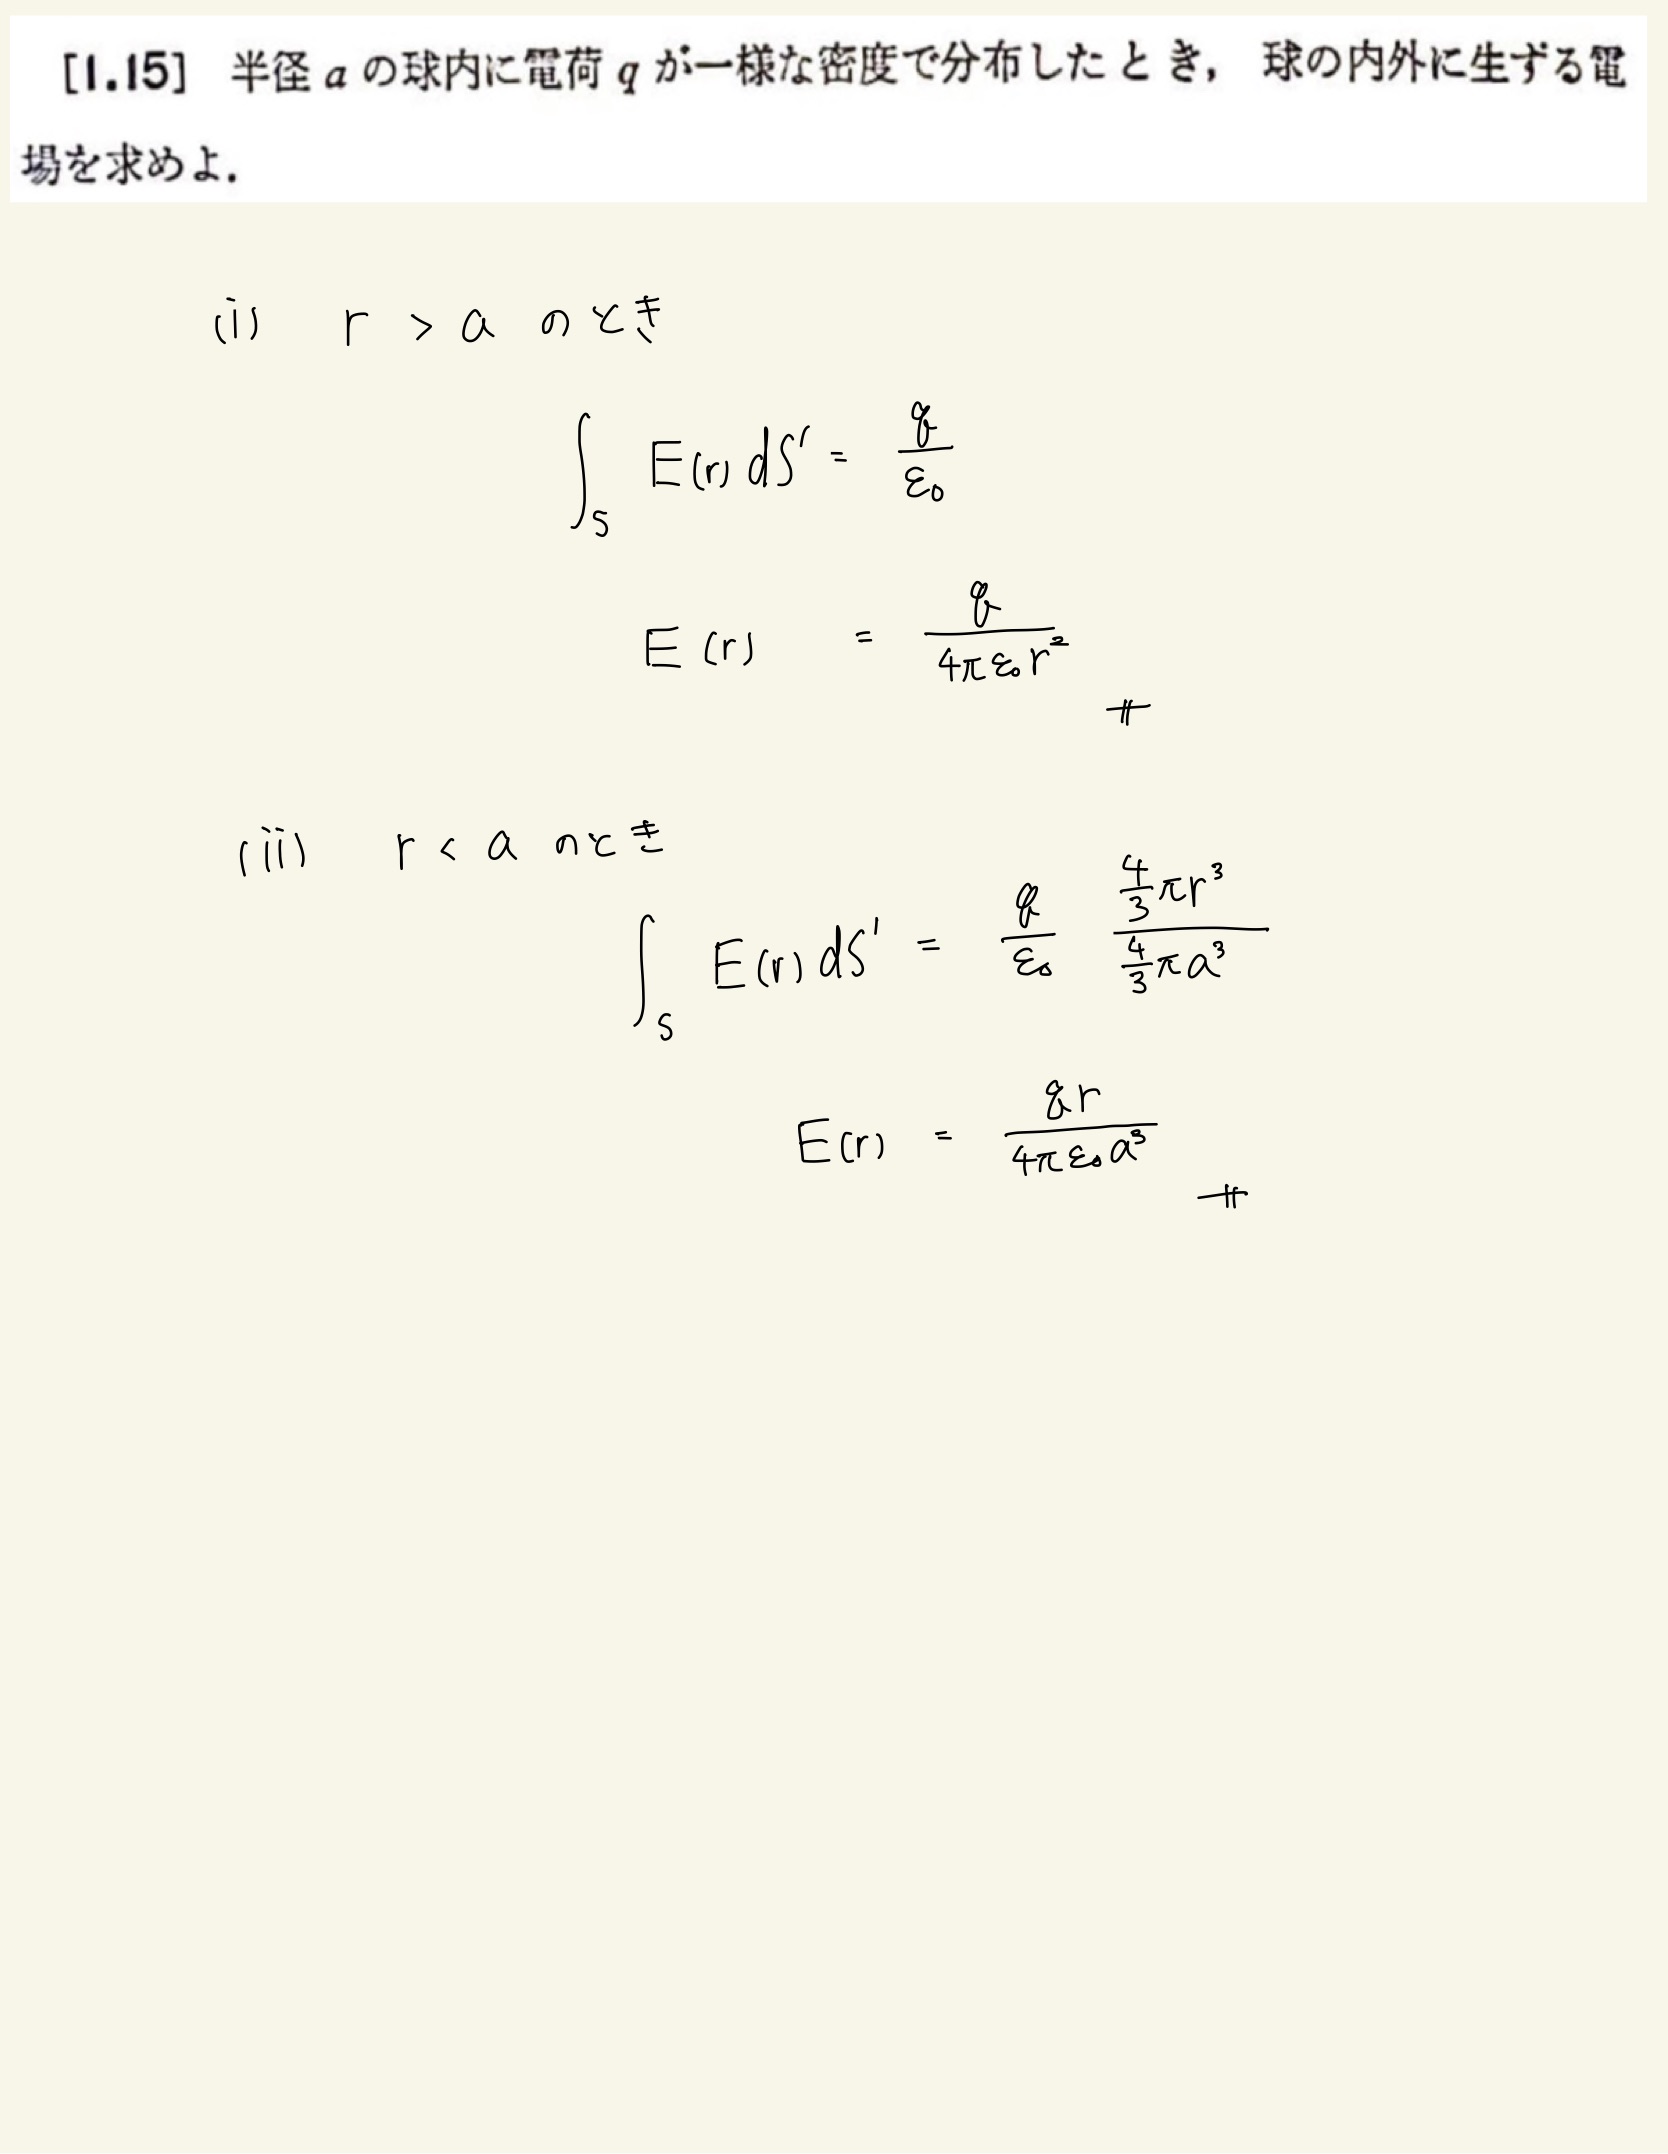 [1.15] 半径 a の球内に電荷 q が一様な密度で分布したとき, 球の内外に生ずる電
場を求めよ.
(i) r > a のとき
∫_S E(r) dS' = q/ε₀
E(r) = q/4πε₀r²
(ii) r < a のとき
∫_S E(r) dS' = q/ε₀ (4/3 πr³)/(4/3 πa³)
E(r) = qr/4πε₀a³